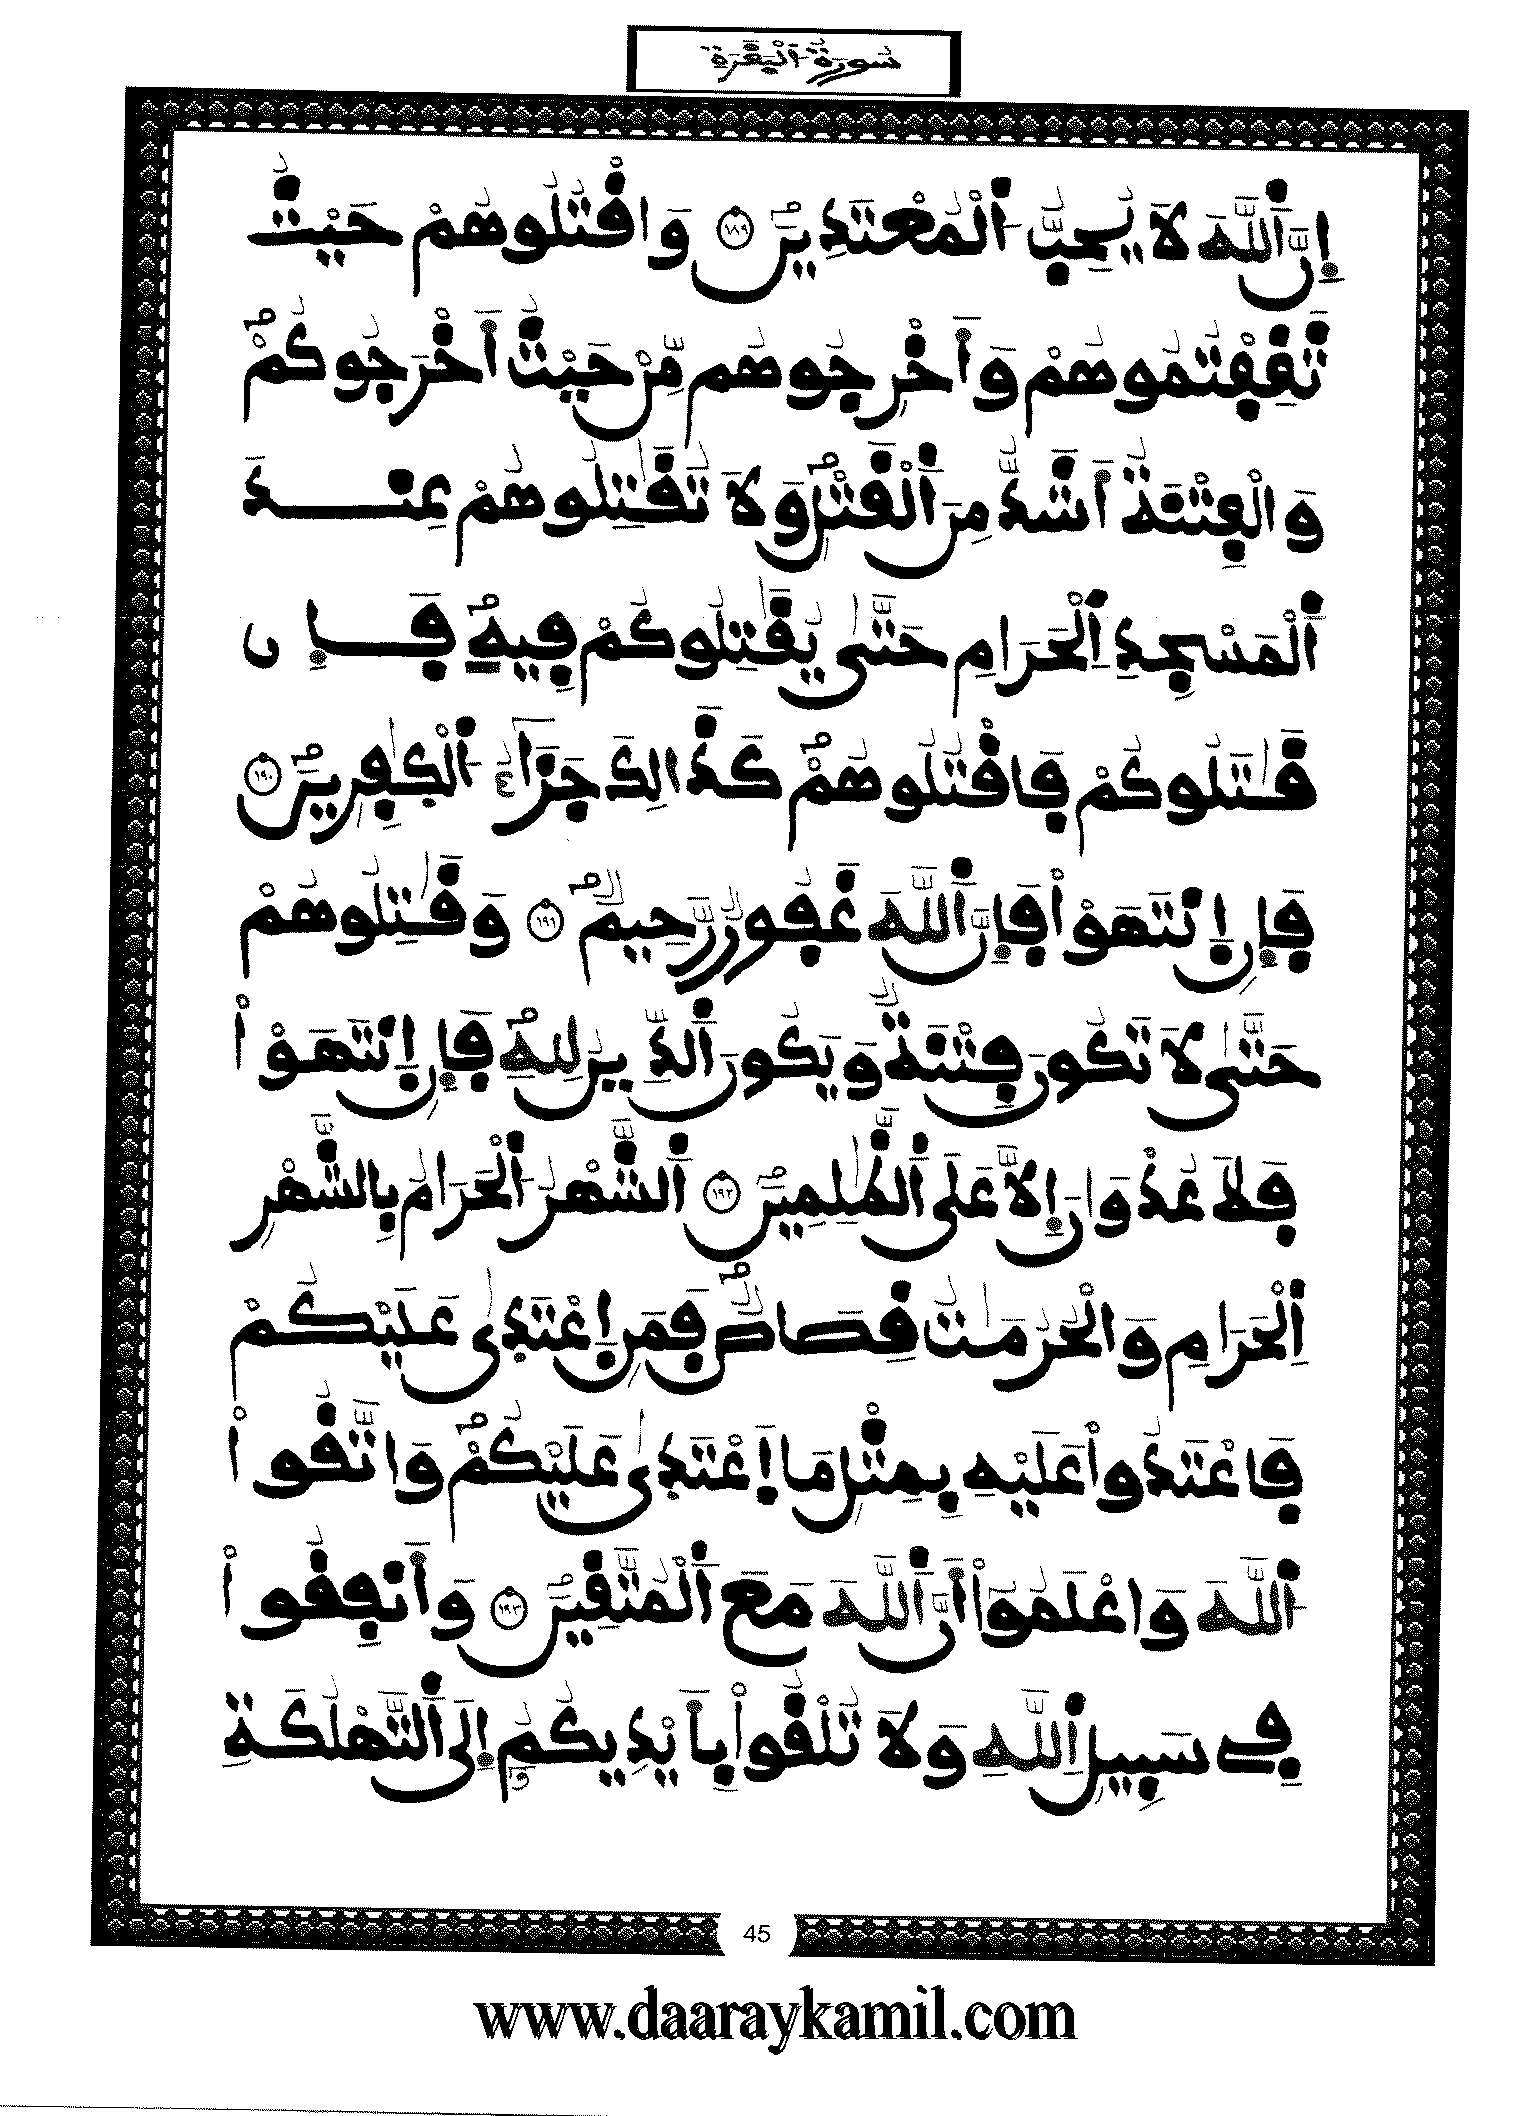 سُورَةُ الْبَقَرَةِ
إِنَّ اَللَّهَ لَا يُحِبُّ اَلْمُعْتَدِينَ ١٨٩ وَاقْتُلُوهُمْ حَيْثُ
ثَقِفْتُمُوهُمْ وَأَخْرِجُوهُم مِّنْ حَيْثُ أَخْرَجُوكُمْ
وَالْفِتْنَةُ أَشَدُّ مِنَ اَلْقَتْلِ وَلَا تُقَٰتِلُوهُمْ عِندَ
اَلْمَسْجِدِ اِلْحَرَامِ حَتَّىٰ يُقَٰتِلُوكُمْ فِيهِ فَإِن
قَٰتَلُوكُمْ فَاقْتُلُوهُمْ كَذَٰلِكَ جَزَآءُ اُلْكَٰفِرِينَ ١٩٠
فَإِنِ اِنتَهَوْاْ فَإِنَّ اَللَّهَ غَفُورٌ رَّحِيمٌ ١٩١ وَقَٰتِلُوهُمْ
حَتَّىٰ لَا تَكُونَ فِتْنَةٌ وَيَكُونَ اَلدِّينُ لِلهِ فَإِنِ اِنتَهَوْاْ
فَلَا عُدْوَٰنَ إِلَّا عَلَى اَلظَّٰلِمِينَ ١٩٢ اَلشَّهْرُ اُلْحَرَامُ بِالشَّهْرِ
اِلْحَرَامِ وَالْحُرُمَٰتُ قِصَاصٌ فَمَنِ اِعْتَدَىٰ عَلَيْكُمْ
فَاعْتَدُواْ عَلَيْهِ بِمِثْلِ مَا اَعْتَدَىٰ عَلَيْكُمْ وَاتَّقُواْ
اُللَّهَ وَاعْلَمُواْ أَنَّ اَللَّهَ مَعَ اَلْمُتَّقِينَ ١٩٣ وَأَنفِقُواْ
فِي سَبِيلِ اِللَّهِ وَلَا تُلْقُواْ بِأَيْدِيكُمْ إِلَى اَلتَّهْلُكَةِ
45
www.daaraykamil.com